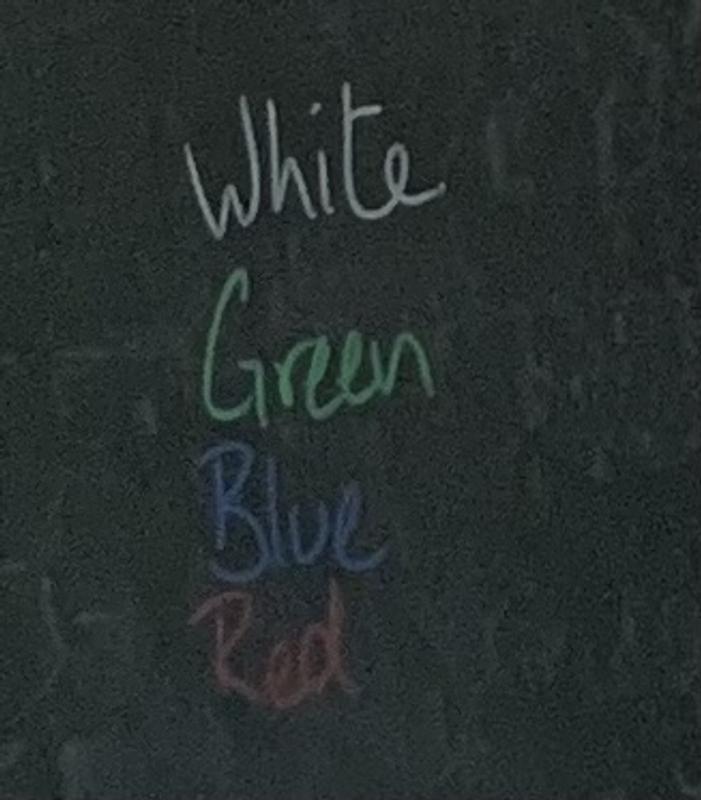 White
Green
Blue
Red